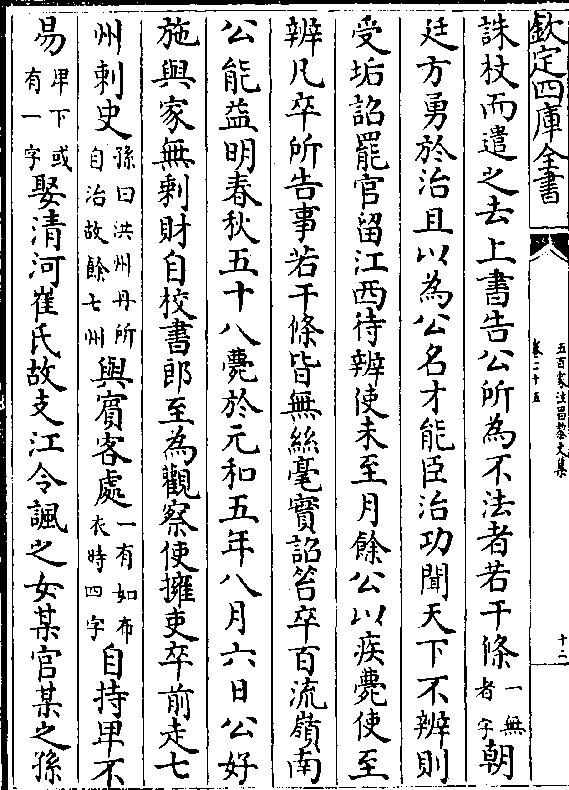 欽定四庫全書
五百家注昌黎文集
卷二十五
十二
誅杖而遣之去上書告公所為不法者若干條一無者字朝
廷方勇於治且以為公名才能臣治功聞天下不辨則
受垢詔罷官留江西待辨使未至月餘公以疾薨使至
辨凡卒所告事若干條皆無絲毫實詔笞卒百流嶺南
公能益明春秋五十八薨於元和五年八月六日公好
施與家無剩財自校書郎至為觀察使擁吏卒前走七
州刺史孫曰洪州丹所自治故餘七州與賓客處一有如布衣時四字自持卑不
易卑下或有一字娶清河崔氏故支江令諷之女某官某之孫